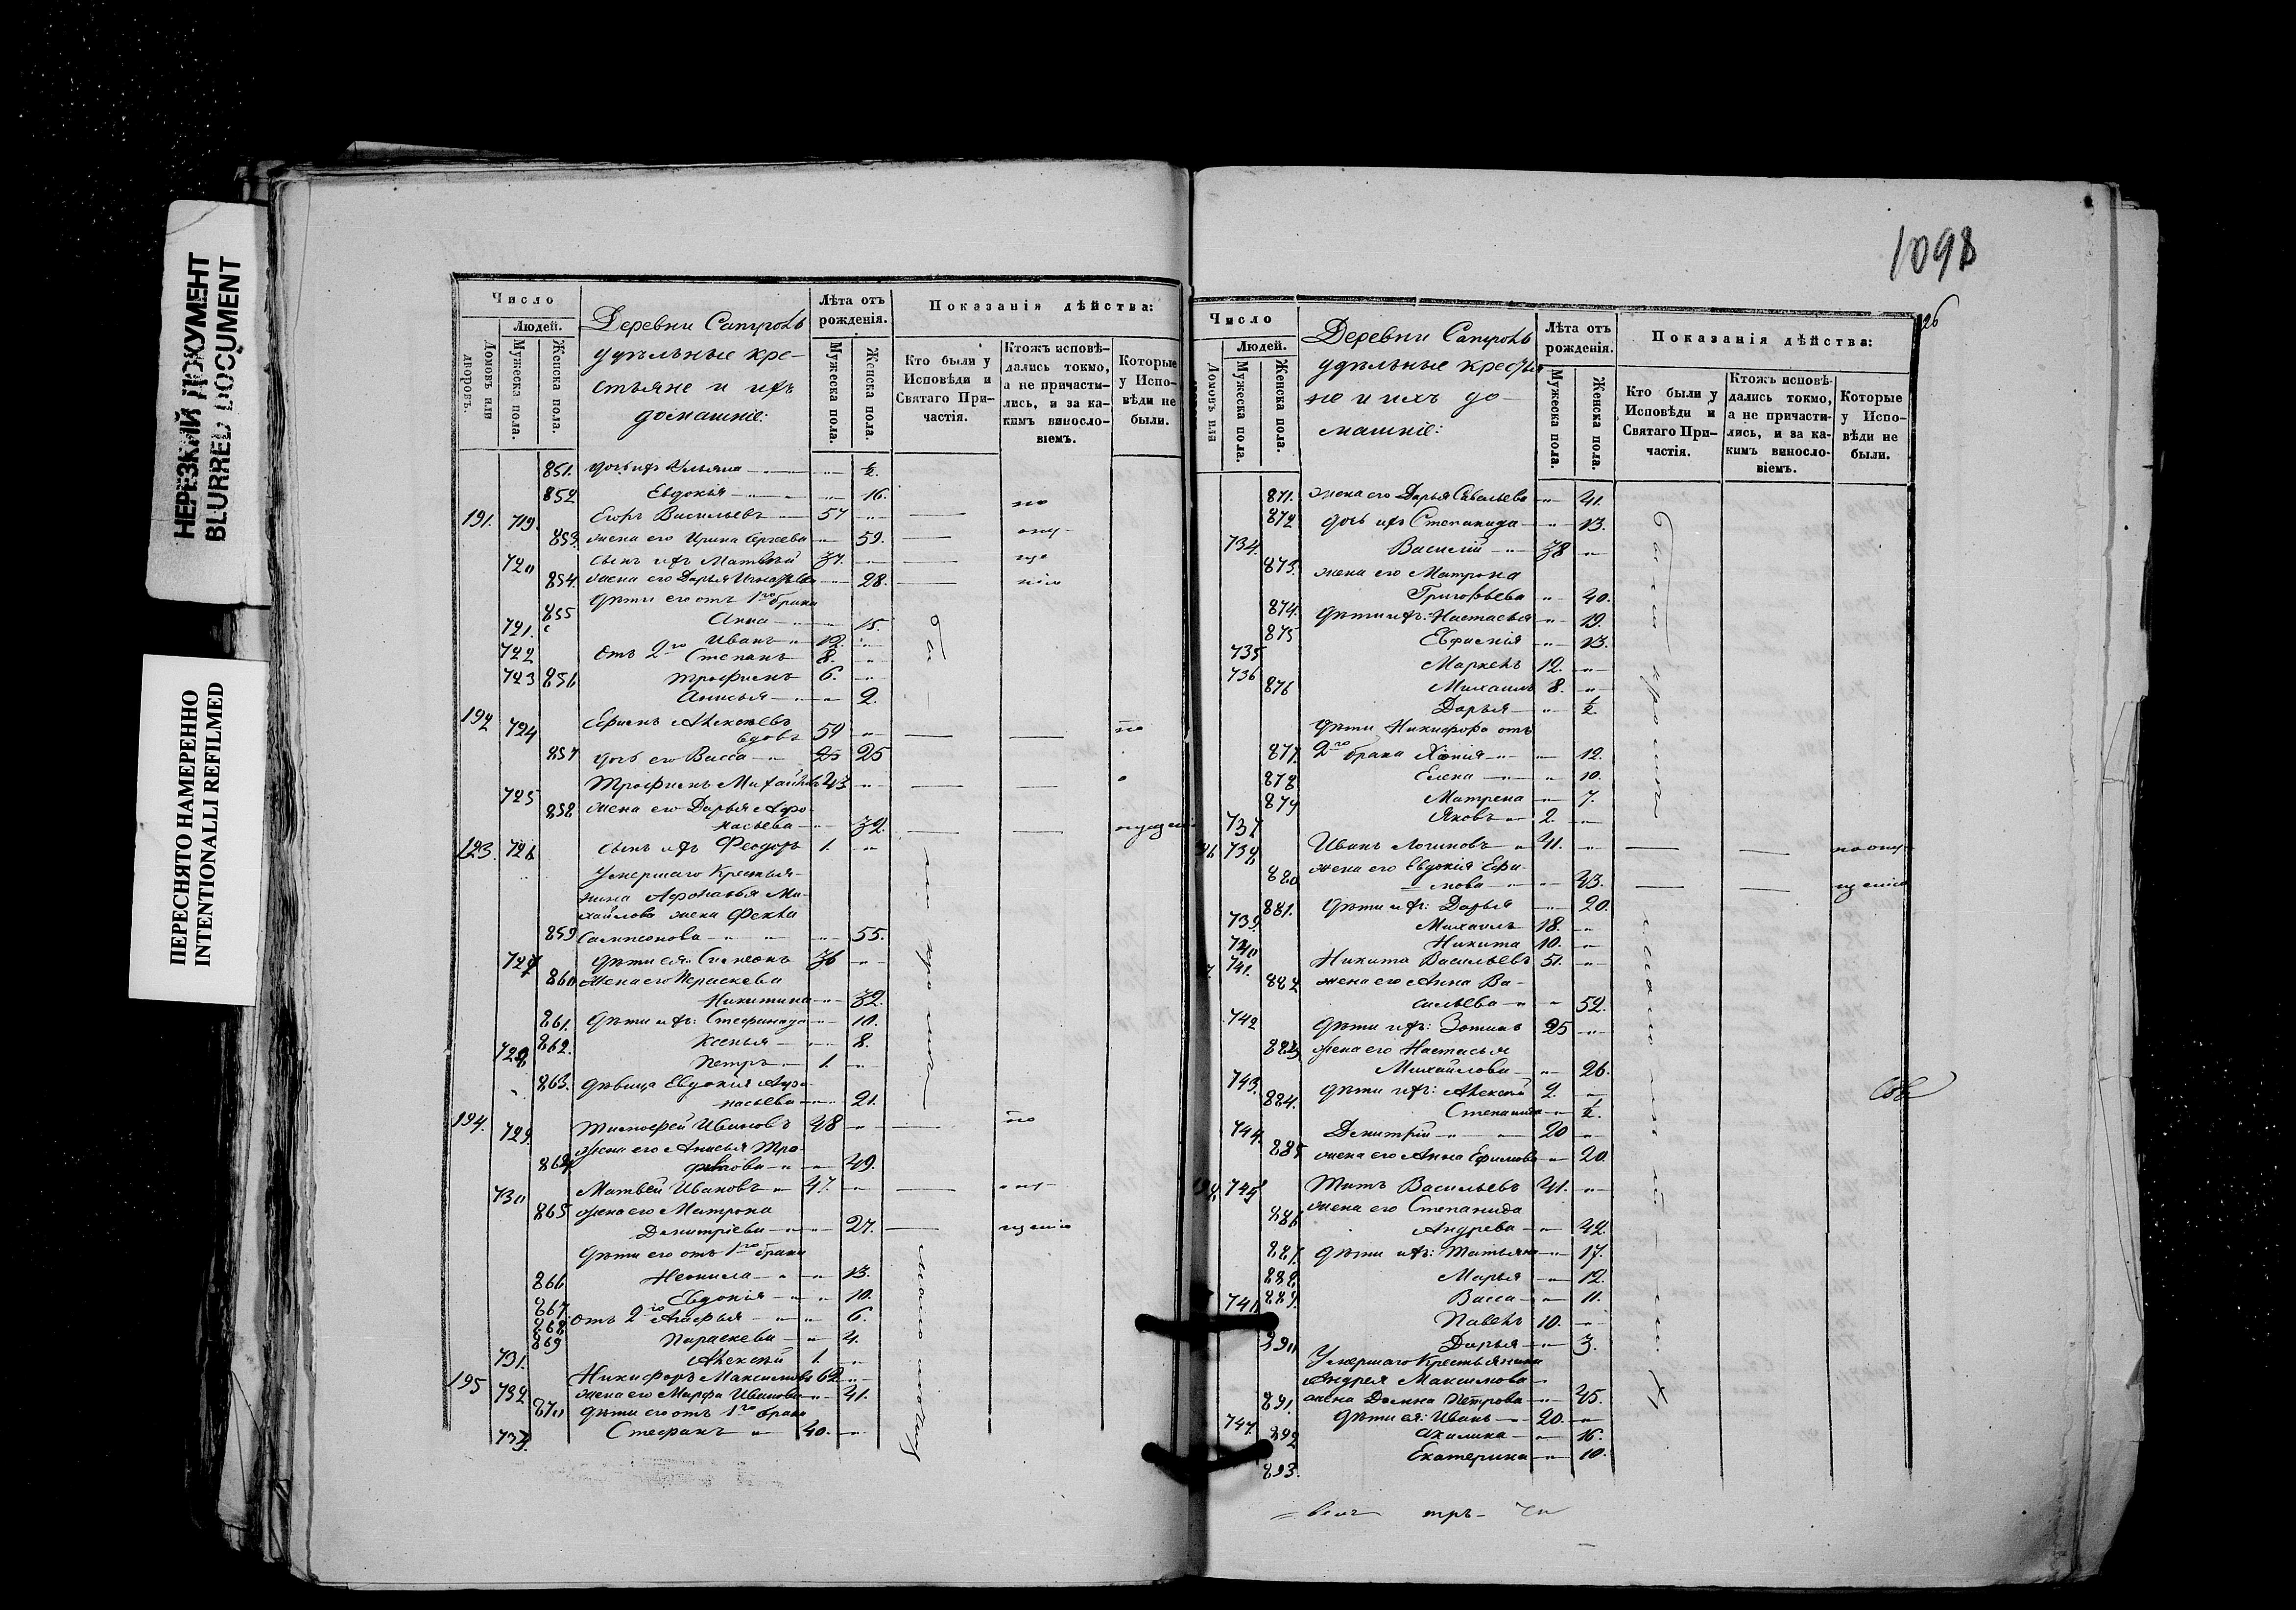 НЕРЕЗКИЙ ДОКУМЕНТ
BLURRED DOCUMENT
ПЕРЕСНЯТО НАМЕРЕННО
INTENTIONALLI REFILMED
Число
Людей.
Домовъ или дворовъ.
Мужеска пола.
Женска пола.
Деревни
удѣльные кре-
стьяне и ихъ
домашніе:
Лѣта отъ рожденія.
Мужеска пола.
Женска пола.
Показанія дѣйства:
Кто были у Исповѣди и Святаго При-частія.
Ктожъ исповѣ-дались токмо, а не причасти-лись, и за ка-кимъ винословіемъ.
Которые у Испо-вѣди не были.
851. дочь ихъ Ульяна ½.
852 Евдокія 16.
191. 719. Егоръ Васильевъ 57 по
853. жена его Ирина Сергеева 59. опу-
720 сынъ ихъ Матвѣй 37. ще
854. жена его Дарья 28. нію
дѣти его отъ 1го брака
855 Анна 15.
721. Иванъ 12.
722 отъ 2го Степанъ 8.
723 856 Трофимъ 6.
Анисья 2.
192 724 Ефимъ Алексѣевъ
вдовъ 59 по
857 дочь его Васса 25 25
725 Трофимъ Михайловъ 43
858 жена его Дарья Афо-
насьева 32. пущенію
193. 726 сынъ ихъ Феодоръ 1.
Умершаго Крестья-
нина Афонасья Ми-
хайлова жена Фекла
859 Сампсонова 55.
727 дѣти ея: Симеонъ 36
860 жена его Параскева
Никитина 32.
861. дѣти ихъ: Стефанида 10.
862. Ксенья 8.
728 Петръ 1.
863. дѣвица Евдокия Афо-
насьева 21.
194. 729. Тимофей Ивановъ 48 по
864 жена его Анисья Тро-
фимова 49.
730 Матвѣй Ивановъ 47. опу-
865 жена его Матрона
Димитріева 27. щенію
дѣти его отъ 1го брака
866 Неонила 13.
867. Евдокія 10.
868 отъ 2го Агафья 6.
869 Параскева 4.
731. Алексѣй 1.
195 732 Никифоръ Максимовъ 62
870 жена его Марфа Иванова 41.
дѣти его отъ 1го брака
733. Стефанъ 40.
1098
126
Число
Людей.
Домовъ или
Мужеска пола.
Женска пола.
Деревни
удѣльные крестья
не и ихъ до-
машніе:
Лѣта отъ рожденія.
Мужеска пола.
Женска пола.
Показанія дѣйства:
Кто были у Исповѣди и Святаго При-частія.
Ктожъ исповѣ-дались токмо, а не причасти-лись, и за ка-кимъ винословіемъ.
Которые у Испо-вѣди не были.
871. жена его Дарья Савельева 41.
872 дочь ихъ Степанида 13.
734. Василій 38
873. жена его Матрона
Григорьева 40.
874. дѣти ихъ: Настасья 19.
875 Евфимія 13.
735 Маркелъ 12.
736 Михаилъ 8.
876 Дарья ½.
дѣти Никифора отъ
877. 2го брака Ксенія 12.
878 Елена 10.
879 Матрена 7.
737 Яковъ 2.
738 Иванъ Логиновъ 41. по опу-
880 жена его Евдокія Ефи-
мова 43. щенію
881. дѣти ихъ: Дарья 20.
739. Михаилъ 18.
740 Никита 10.
741. Никита Васильевъ 51.
882 жена его Анна Ва-
сильева 52.
742 дѣти ихъ: Зотикъ 25
883 жена его Настасья
Михайлова 26.
743. дѣти ихъ: Алексѣй 2.
884. Степанида ½.
744. Димитрій 20
885 жена его Анна Ефимова 20
745 Титъ Васильевъ 41.
886 жена его Степанида
Андрева 42.
887. дѣти ихъ: Татьяна 17.
888 Марья 12.
889. Васса 11.
746 Павелъ 10.
890 Дарья 3.
Умершаго Крестьянина
Андрея Максимова
891. жена Домна Петрова 45.
747. дѣти ея: Иванъ 20.
892 Акилина 16.
893. Екатерина 10.